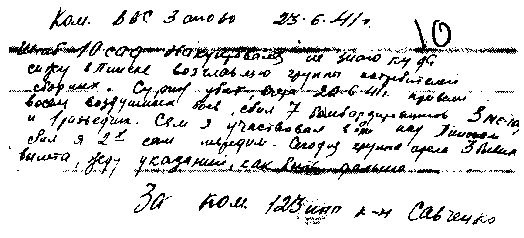 Ком. ВВС Запово 23-6-41г.
10
Штаб 10 сад эвакуировался не знаю куда
сижу в Пинске возглавлю группы истребителей
сборных. Сурин убит вчера 22-6-41г. провели
восем воздушных боев, сбил 7 бомбардировщиков 3 ме-109
и 1 разведчик. Сам я участвовал в над Пинском
сбил я 2х сам лично. Сегодня группа 3 вылета
вылета, жду указаний, как быть дальше
За ком. 123 иап к-н Савченко